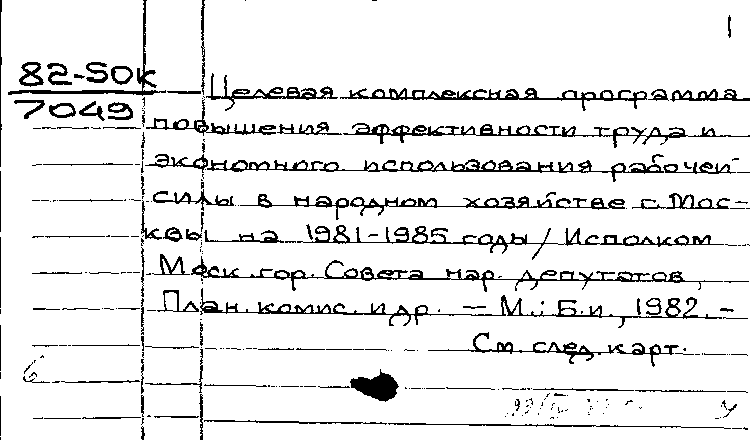 1
82-5ОК
7049
Целевая комплексная программа
повышения эффективности труда и
экономного использования рабочей
силы в народном хозяйстве г. Мос-
квы на 1981-1985 годы / Исполком
Моск. гор. Совета нар. депутатов,
План. комис. и др. — М.: Б.и., 1982. -
См. след. карт.
6